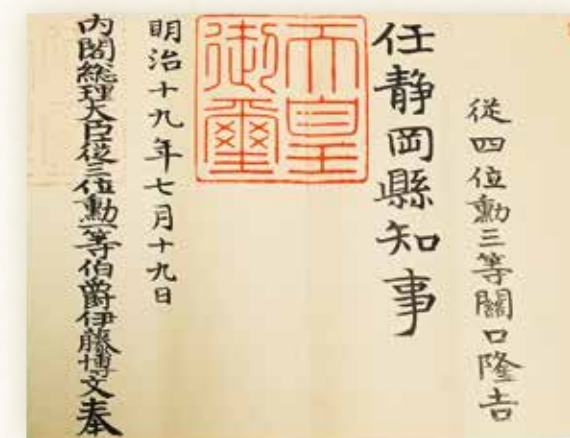 從四位勳三等關口隆吉
任靜岡縣知事
天皇御璽
明治十九年七月十九日
内閣總理大臣從三位勳一等伯爵伊藤博文奉